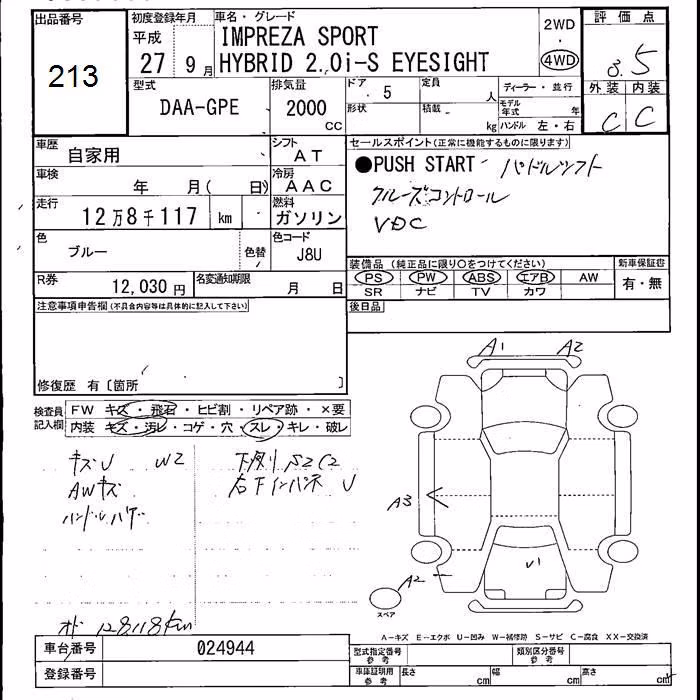 出品番号
213
初度登録年月
平成
27 9月
車名・グレード
IMPREZA SPORT
HYBRID 2.0i-S EYESIGHT
2WD
・
4WD
評価点
3.5
外装 内装
C C
型式
DAA-GPE
排気量
2000
cc
ドア
5
形状
定員
人
積載
kg
ディーラー・並行
モデル年式 年
ハンドル 左・右
車歴
自家用
シフト
AT
車検
年 月( 日)
冷房
AAC
走行
12万8千117 km
燃料
ガソリン
色
ブルー
色替
色コード
J8U
R券
12,030円
名変通知期限
月 日
セールスポイント(正常に機能するものに限ります)
●PUSH START パドルシフト
クルーズコントロール
VDC
装備品 (純正品に限り○をつけてください)
PS PW ABS エアB AW
SR ナビ TV カワ
新車保証書
有・無
後日品
注意事項申告欄(不具合内容等は具体的に記入して下さい)
修復歴 有〔箇所 〕
検査員
記入欄
FW キズ・飛石・ヒビ割・リペア跡・×要
内装 キズ・汚レ・コゲ・穴・スレ・キレ・破レ
キズU W2
AWキズ
ハンドルハゲ
下廻りS2C2
右下インパネ U
オド 128118km
A1 A2
A3
A2
U1
スペア
A-キズ E-エクボ U-凹み W-補修跡 S-サビ C-腐食 XX-交換済
車台番号
024944
登録番号
型式指定番号
参考
類別区分番号
参考
車庫証明用
参考
長さ cm 幅 cm 高さ cm